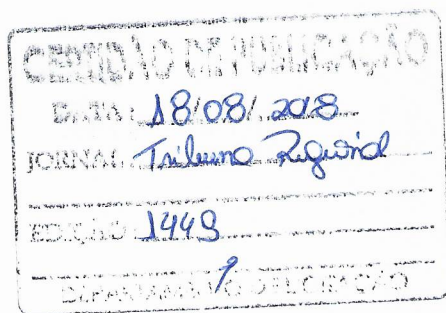 CERTIDÃO DE PUBLICAÇÃO
DATA: 18/08/2018
JORNAL: Tribuna Regional
EDIÇÃO 1449
DEPARTAMENTO DE LICITAÇÃO